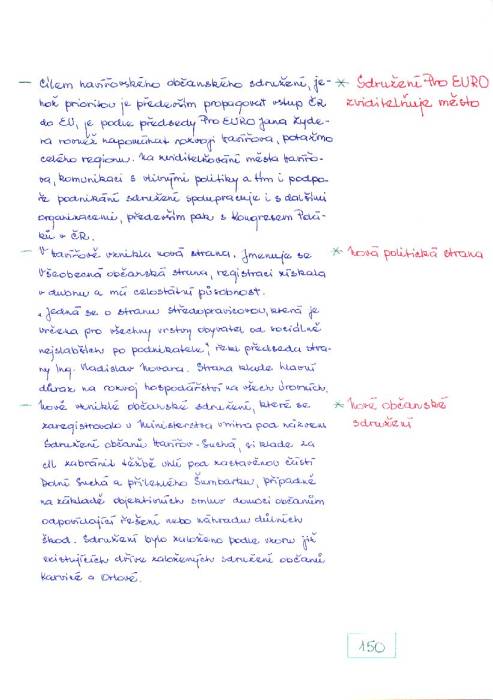 – Cílem havířovského občanského sdružení, je-
hož prioritou je především propagovat vstup ČR
do EU, je podle předsedy Pro EURO Jana Zyde-
ra rovněž napomáhat rozvoji Havířova, potažmo
celého regionu. Na zviditelňování města Havířo-
va, komunikaci s vlivnými politiky a tím i podpo-
ře podnikání sdružení spolupracuje i s dalšími
organizacemi, především pak s Kongresem Polá-
ků v ČR.
* Sdružení Pro EURO
zviditelňuje město
– V Havířově vznikla nová strana. Jmenuje se
Všeobecná občanská strana, registraci získala
v dubnu a má celostátní působnost.
„Jedná se o stranu středopravicovou, která je
určena pro všechny vrstvy obyvatel od sociálně
nejslabších po podnikatele", řekl předseda stra-
ny Ing. Vladislav Hovara. Strana klade hlavní
důraz na rozvoj hospodářství na všech úrovních.
* Nová politická strana
– Nově vzniklé občanské sdružení, které se
zaregistrovalo u Ministerstva vnitra pod názvem
Sdružení občanů Havířov-Suchá, si klade za
cíl zabránit těžbě uhlí pod zastavěnou částí
Dolní Suchá a přilehlého Šumbarku, případně
na základě objektivních smluv domoci občanům
odpovídající řešení nebo náhradu důlních
škod. Sdružení bylo založeno podle vzoru již
existujících dříve založených sdružení občanů
Karviné a Orlové.
* Nové občanské
sdružení
150